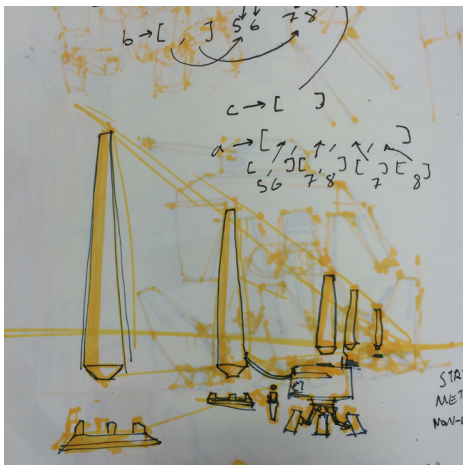 56 78
b→[ , ]
c→[ ]
a→[ , , , ]
[ , ][ , ][ ][ ]
56 7,8 7 8
STA
MET
MON-